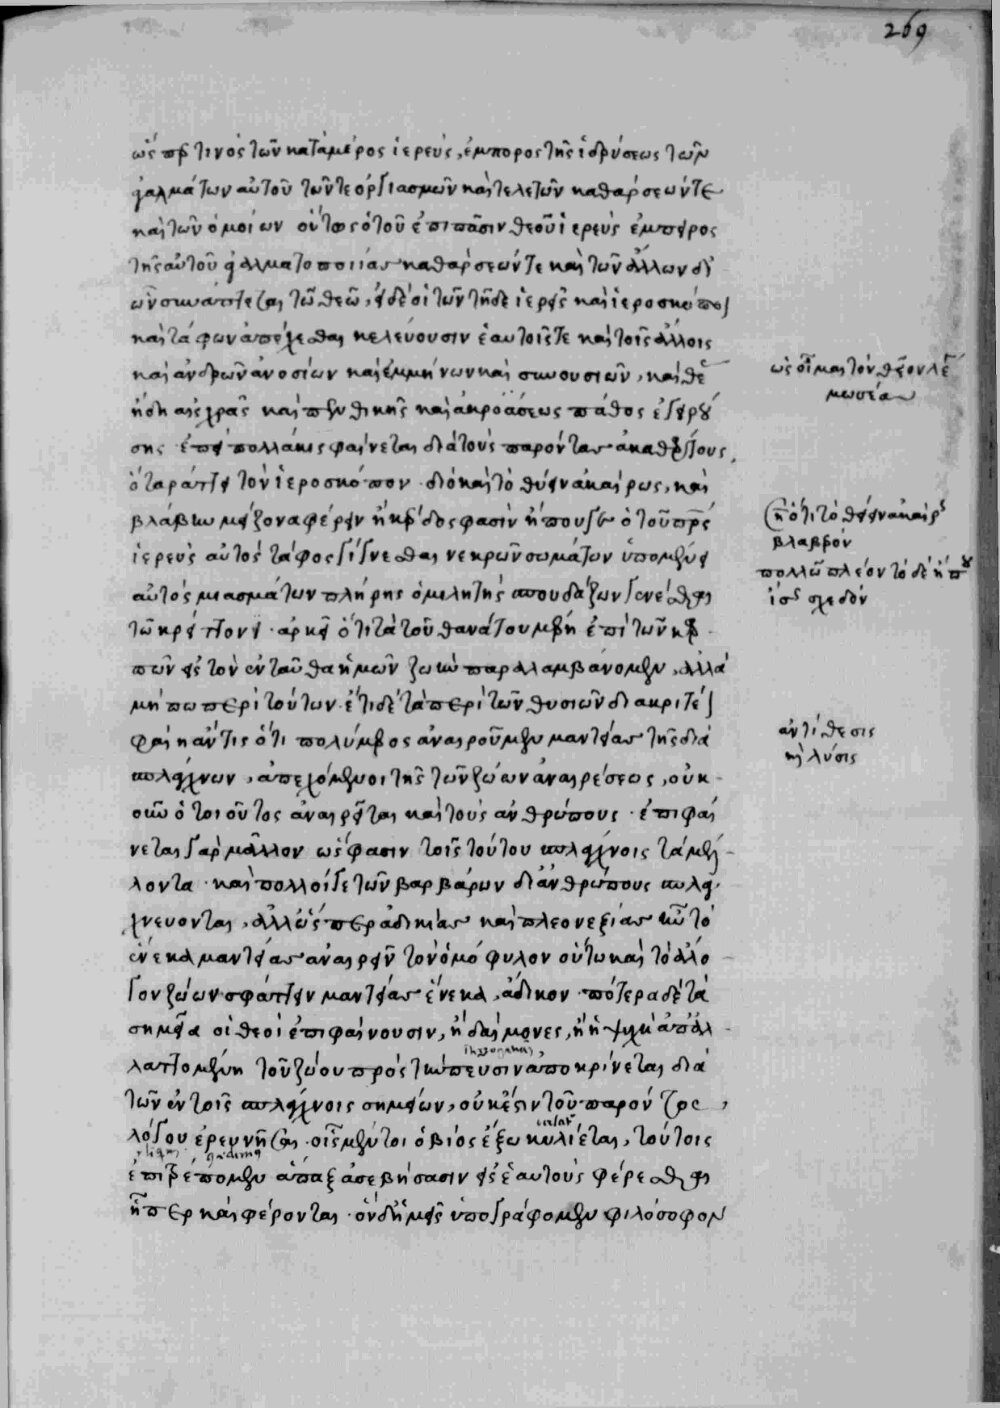 269
ὡς γάρ τινος τῶν κατὰ μέρος ἱερεὺς, ἔμπορος τῆς ἱδρύσεως τῶν
ἀγαλμάτων αὐτοῦ τῶν τε ὀργιασμῶν καὶ τελετῶν καθάρσεών τε
καὶ τῶν ὁμοίων οὕτως ὁ τοῦ ἐπὶ πᾶσιν θεοῦ ἱερεὺς ἔμπειρος
τῆς αὐτοῦ ἀγαλματοποιίας καθάρσεών τε καὶ τῶν ἄλλων δι'
ὧν συνάπτεται τῷ θεῷ, εἰ δὲ οἱ τῶν τῇδε ἱερεῖς καὶ ἱεροσκόποι
καὶ τάφων ἀπέχεσθαι κελεύουσιν ἑαυτοῖς τε καὶ τοῖς ἄλλοις
καὶ ἀνδρῶν ἀνοσίων καὶ ἐμμήνων καὶ συνουσιῶν, καὶ θέας
ἤδη αἰσχρᾶς καὶ πενθικῆς καὶ ἀκροάσεως πάθος ἐγειρού
σης ἐπεὶ πολλάκις φαίνεται διὰ τοὺς παρόντας ἀκαθάρτους,
ὃ ταράττει τὸν ἱεροσκόπον διὸ καὶ τὸ θύειν ἀκαίρως, καὶ
βλάβην μείζονα φέρειν ἢ κέρδος φασὶν ἤπου γε ὁ τοῦ πατρὸς
ἱερεὺς αὐτὸς τάφος γίγνεσθαι νεκρῶν σωμάτων ὑπομένει
αὐτὸς μιασμάτων πλήρης ὁμιλητὴς σπουδάζων γενέσθαι
τῷ κρείττονι ἀρκεῖ ὅτι τὰ τοῦ θανάτου μέρη ἐπὶ τῶν καρ
πῶν εἰς τὸν ἐνταῦθα ἡμῶν ζωὴν παραλαμβάνομεν, ἀλλὰ
μήπω περὶ τούτων. ἔτι δὲ τὰ περὶ τῶν θυσιῶν διακριτέον
φαίη ἄν τις ὅτι πολὺ μέρος ἀναιροῦμεν μαντείας τῆς διὰ
σπλάγχνων, ἀπεχόμενοι τῆς τῶν ζῴων ἀναιρέσεως, οὐκ
οῦν ὁ τοιοῦτος ἀναιρείτω καὶ τοὺς ἀνθρώπους ἐπιφαί
νεται γὰρ μᾶλλον ὥς φασιν τοῖς τούτου σπλάγχνοις τὰ μέλ
λοντα καὶ πολλοί γε τῶν βαρβάρων δι' ἀνθρώπους σπλαγ
χνεύονται, ἀλλ' ὥσπερ ἀδικίας καὶ πλεονεξίας ἦν τὸ
ἕνεκα μαντείας ἀναιρεῖν τὸν ὁμόφυλον οὕτω καὶ τὸ ἄλο
γον ζῷον σφάττειν μαντείας ἕνεκα, ἄδικον πότερα δὲ τὰ
σημεῖα οἱ θεοὶ ἐπιφαίνουσιν, ἢ δαίμονες, ἢ ἡ ψυχὴ ἀπαλ
λαττομένη τοῦ ζῴου πρὸς τὴν πεῦσιν ἀποκρίνεται διὰ
τῶν ἐν τοῖς σπλάγχνοις σημείων, οὐκ ἔστιν τοῦ παρόντος
λόγου ἐρευνῆσαι. οἷς μέντοι ὁ βίος ἔξω κυλίεται, τούτοις
ἐπιτρέπομεν ἅπαξ ἀσεβήσασιν εἰς ἑαυτοὺς φέρεσθαι
ᾗπερ καὶ φέρονται ὃν δ' ἡμεῖς ὑπογράφομεν φιλόσοφον
ὡς οἶμαι τὸν θεῖον λέγει
μωσέα
ὅτι τὸ θύειν ἀκαίρως
βλαβερόν
πολλῷ πλέον τὸ δὲ ἤπου
ἴσως σχεδόν
ἀντίθεσις
καὶ λύσις